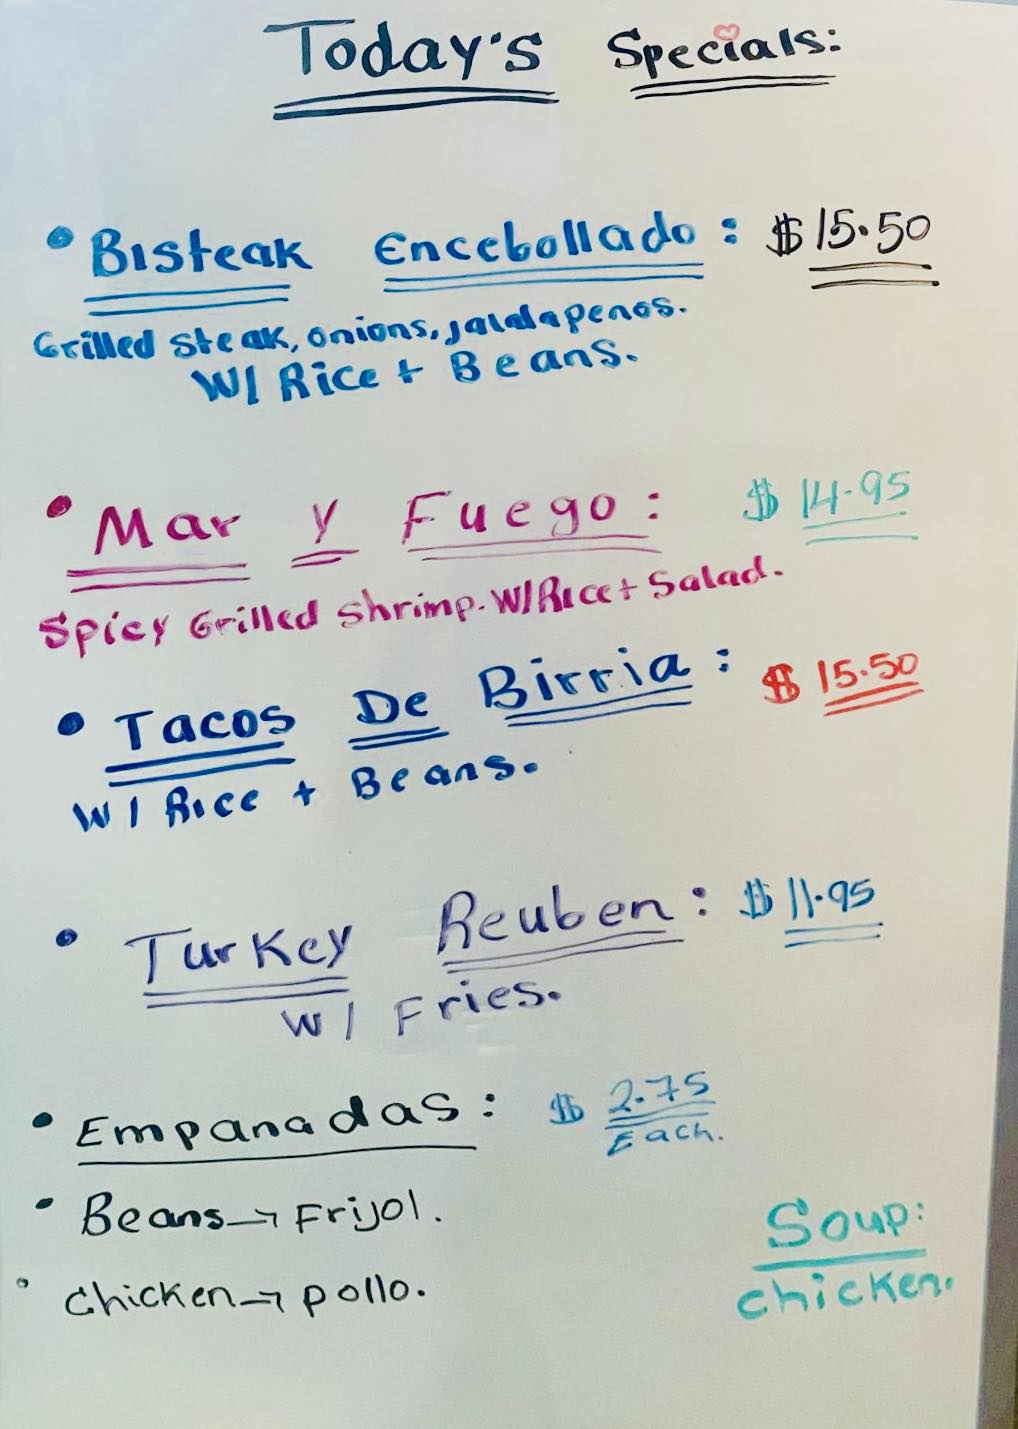 Today's Specials:
• Bisteak Encebollado: $15.50
Grilled Steak, onions, jalalapenos.
W/ Rice + Beans.
• Mar y Fuego: $14.95
Spicy Grilled Shrimp. W/ Rice + Salad.
• Tacos De Birria: $15.50
W/ Rice + Beans.
• Turkey Reuben: $11.95
W/ Fries.
• Empanadas: $2.75
Each.
• Beans → Frijol.
• Chicken → pollo.
Soup:
chicken.